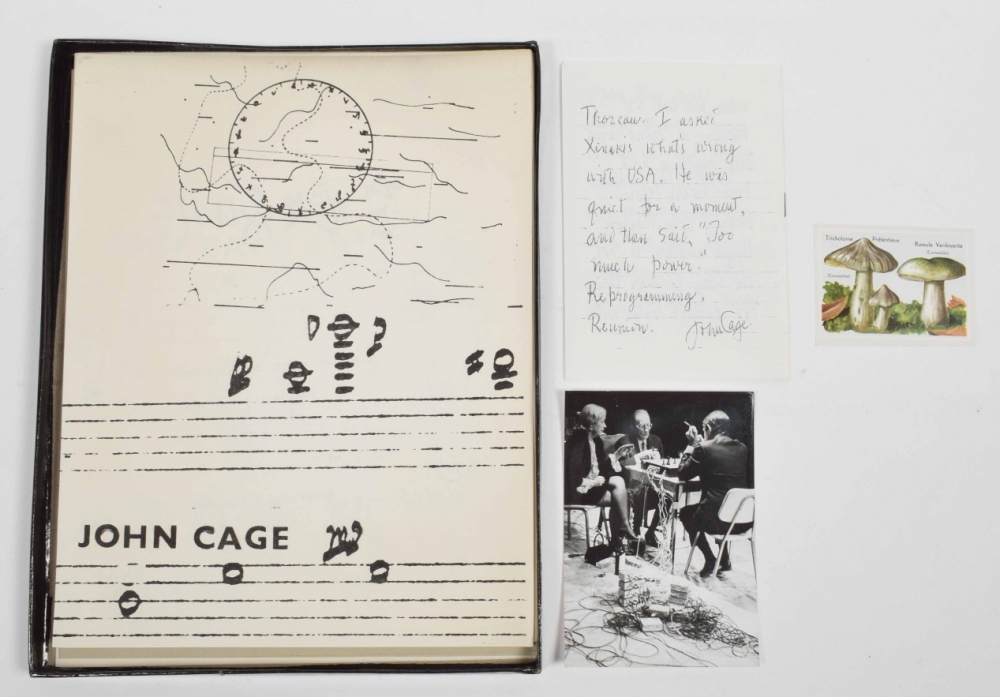 JOHN CAGE
Thoreau. I asked
Xenakis what's wrong
with USA. He was
quiet for a moment,
and then said, "Too
much power."
Reprogramming.
Reunion. John Cage
Tricholome Prétentieux
(Comestible)
Russule Verdoyante
(Comestible)